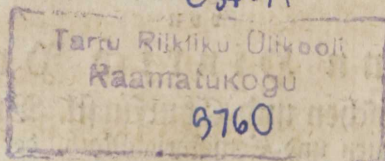 Tartu Riikliku Ülikooli
Raamatukogu
3760